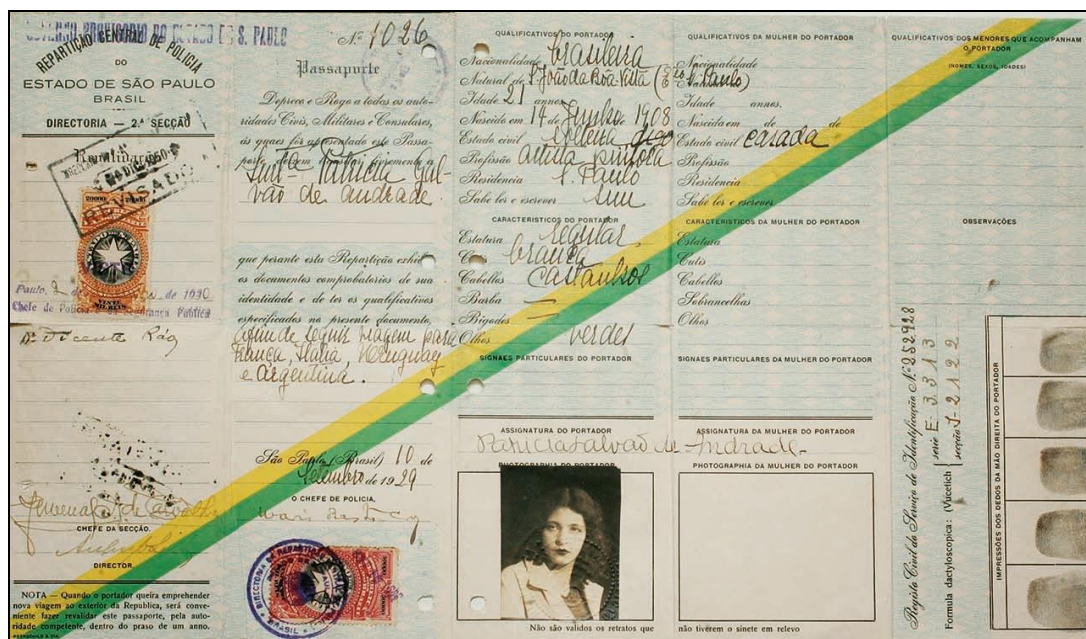 GOVERNO PROVISORIO DO ESTADO DE S. PAULO
REPARTIÇÃO CENTRAL DE POLICIA
DO
ESTADO DE SÃO PAULO
BRASIL
DIRECTORIA — 2.ª SECÇÃO
REVISADO
20000
VINTE MIL REIS
Paulo, 2 de de 1930
Chefe de Policia Segurança Publica
Dr. Vicente Ráo
de Carvalho
CHEFE DA SECÇÃO.
DIRECTOR.
NOTA — Quando o portador queira emprehender
nova viagem ao exterior da Republica, será conve-
niente fazer revalidar este passaporte, pela auto-
ridade competente, dentro do praso de um anno.
Nº 1026
Passaporte
Deprece e Rogo a todas as auto-
ridades Civis, Militares e Consulares,
ás quaes fôr apresentado este Passa-
porte, deixem transitar livremente a
Patricia Gal-
vão de Andrade.
que perante esta Repartição exhibiu
os documentos comprobatorios de sua
identidade e de ter os qualificativos
especificados no presente documento,
afim de seguir viagem para
França, Italia, Uruguay
e Argentina.
São Paulo, (Brasil) 10 de
Setembro de 1929
O CHEFE DE POLICIA,
QUALIFICATIVOS DO PORTADOR
Nacionalidade brasileira
Natural de S. João da Bôa Vista (S. Paulo)
Idade 21 annos.
Nascido em 14 de Junho de 1908
Estado civil solteira, digo
Profissão pintora
Residencia S. Paulo
Sabe ler e escrever sim
CARACTERISTICOS DO PORTADOR
Estatura regular
branca
Cabellos castanhos
Barba —
Bigodes —
Olhos verdes
SIGNAES PARTICULARES DO PORTADOR
ASSIGNATURA DO PORTADOR
Patricia Galvão de Andrade
PHOTOGRAPHIA DO PORTADOR
Não são validos os retratos que
QUALIFICATIVOS DA MULHER DO PORTADOR
Nacionalidade
Idade annos.
Nascida em de de
Estado civil casada
Profissão
Residencia
Sabe ler e escrever
CARACTERISTICOS DA MULHER DO PORTADOR
Estatura
Cutis
Cabellos
Sobrancelhas
Olhos
SIGNAES PARTICULARES DA MULHER DO PORTADOR
ASSIGNATURA DA MULHER DO PORTADOR
PHOTOGRAPHIA DA MULHER DO PORTADOR
não tiverem o sinete em relevo
QUALIFICATIVOS DOS MENORES QUE ACOMPANHAM
O PORTADOR
(NOMES, SEXOS, IDADES)
OBSERVAÇÕES
Registo Civil do Serviço de Identificação Nº 252928
Formula dactyloscopica: (Vucetich)
serie E-3313
secção I-2122
IMPRESSÕES DOS DEDOS DA MÃO DIREITA DO PORTADOR